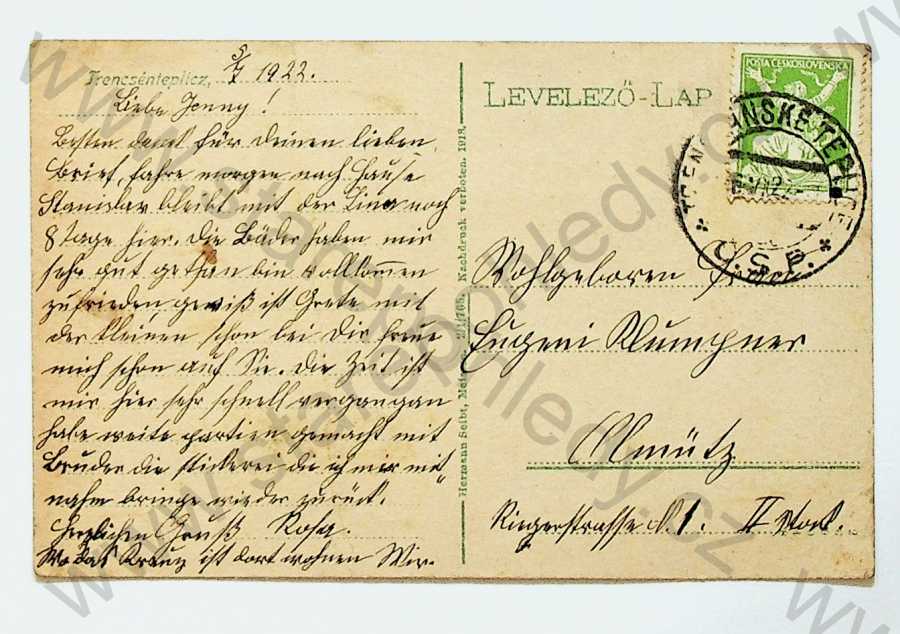 Trencsénteplicz, 5/7 1922.
Liebe Jenny!
Besten Dank für Deinen lieben
Brief, fahre morgen nach Hause
Stanislav bleibt mit der Lina noch
8 Tage hier. Die Bäder haben mir
sehr gut gethan bin vollkommen
zufrieden gewiß ist Grete mit
der kleinen schon bei Dir freue
mich schon auf Sie. Die Zeit ist
mir hier sehr schnell vergangen
habe weite Partien gemacht mit
Bruder die Stickerei die ich mir mit
nahm bringe wieder zurück.
Herzlichen Gruß Rosa.
Wo das Kreuz ist dort wohnen Wir.
Hermann Seibt, Meissen, 2/1/765. Nachdruck verboten. 1918.
LEVELEZŐ-LAP
POŠTA ČESKOSLOVENSKÁ
TRENČIANSKE TEPLICE
Č.S.P.
Wohlgeboren
Eugeni Klumpner
Olmütz
Riegerstrasse II Stock.
www.starepohledy.cz